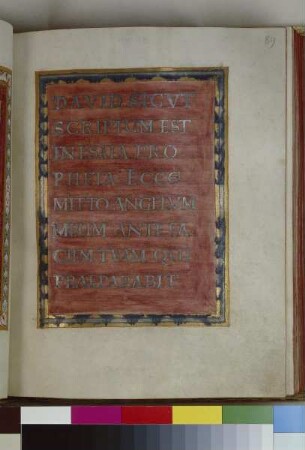 69
DAVID SICVT
SCRIPTUM EST
IN ESAIA PRO
PHETA ECCE
MITTO ANGELUM
MEUM ANTE FA
CIEM TVAM QUI
PRAEPARABIT